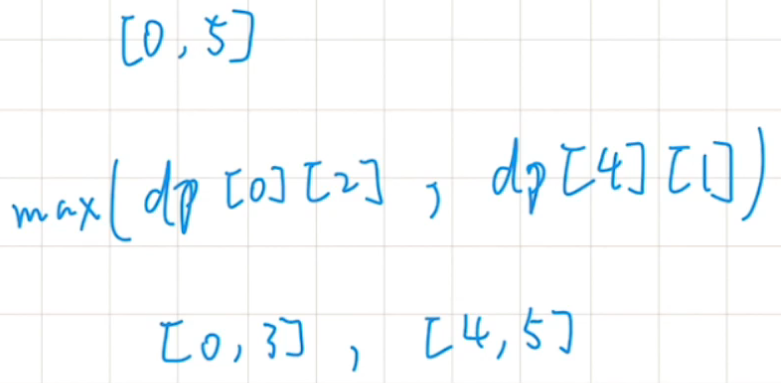 [0,5]
max(dp[0][2], dp[4][1])
[0,3], [4,5]